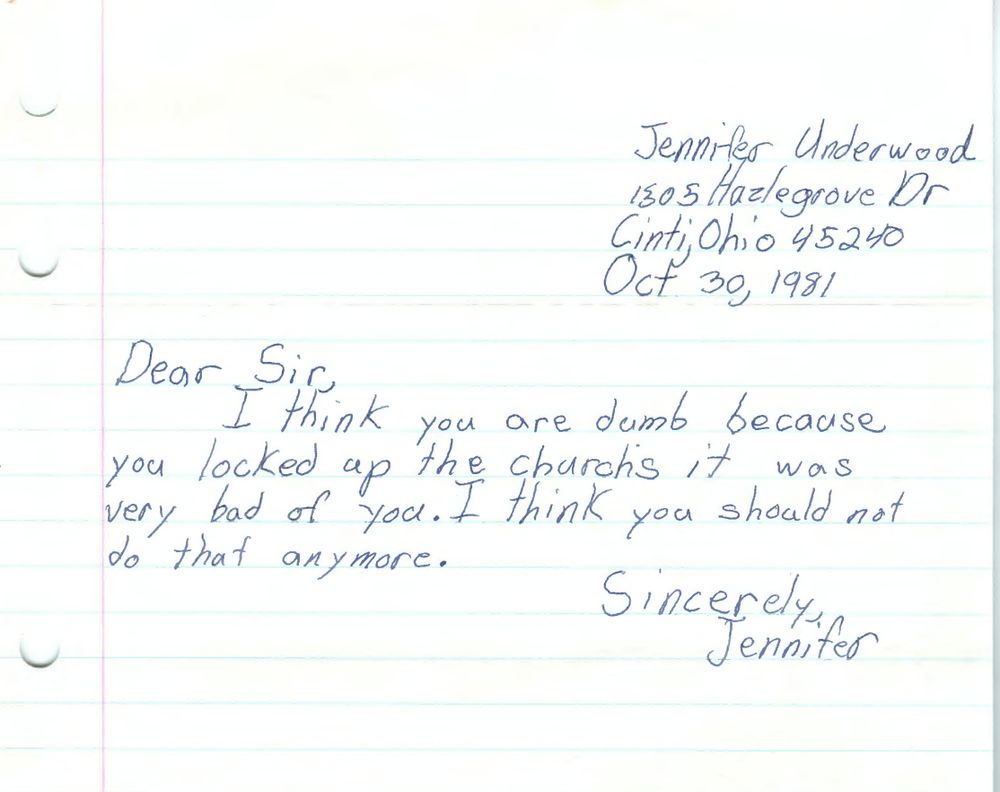 Jennifer Underwood
1505 Hazlegrove Dr
Cinti, Ohio 45240
Oct 30, 1981
Dear Sir,
I think you are dumb because
you locked up the churchs it was
very bad of you. I think you should not
do that anymore.
Sincerely,
Jennifer